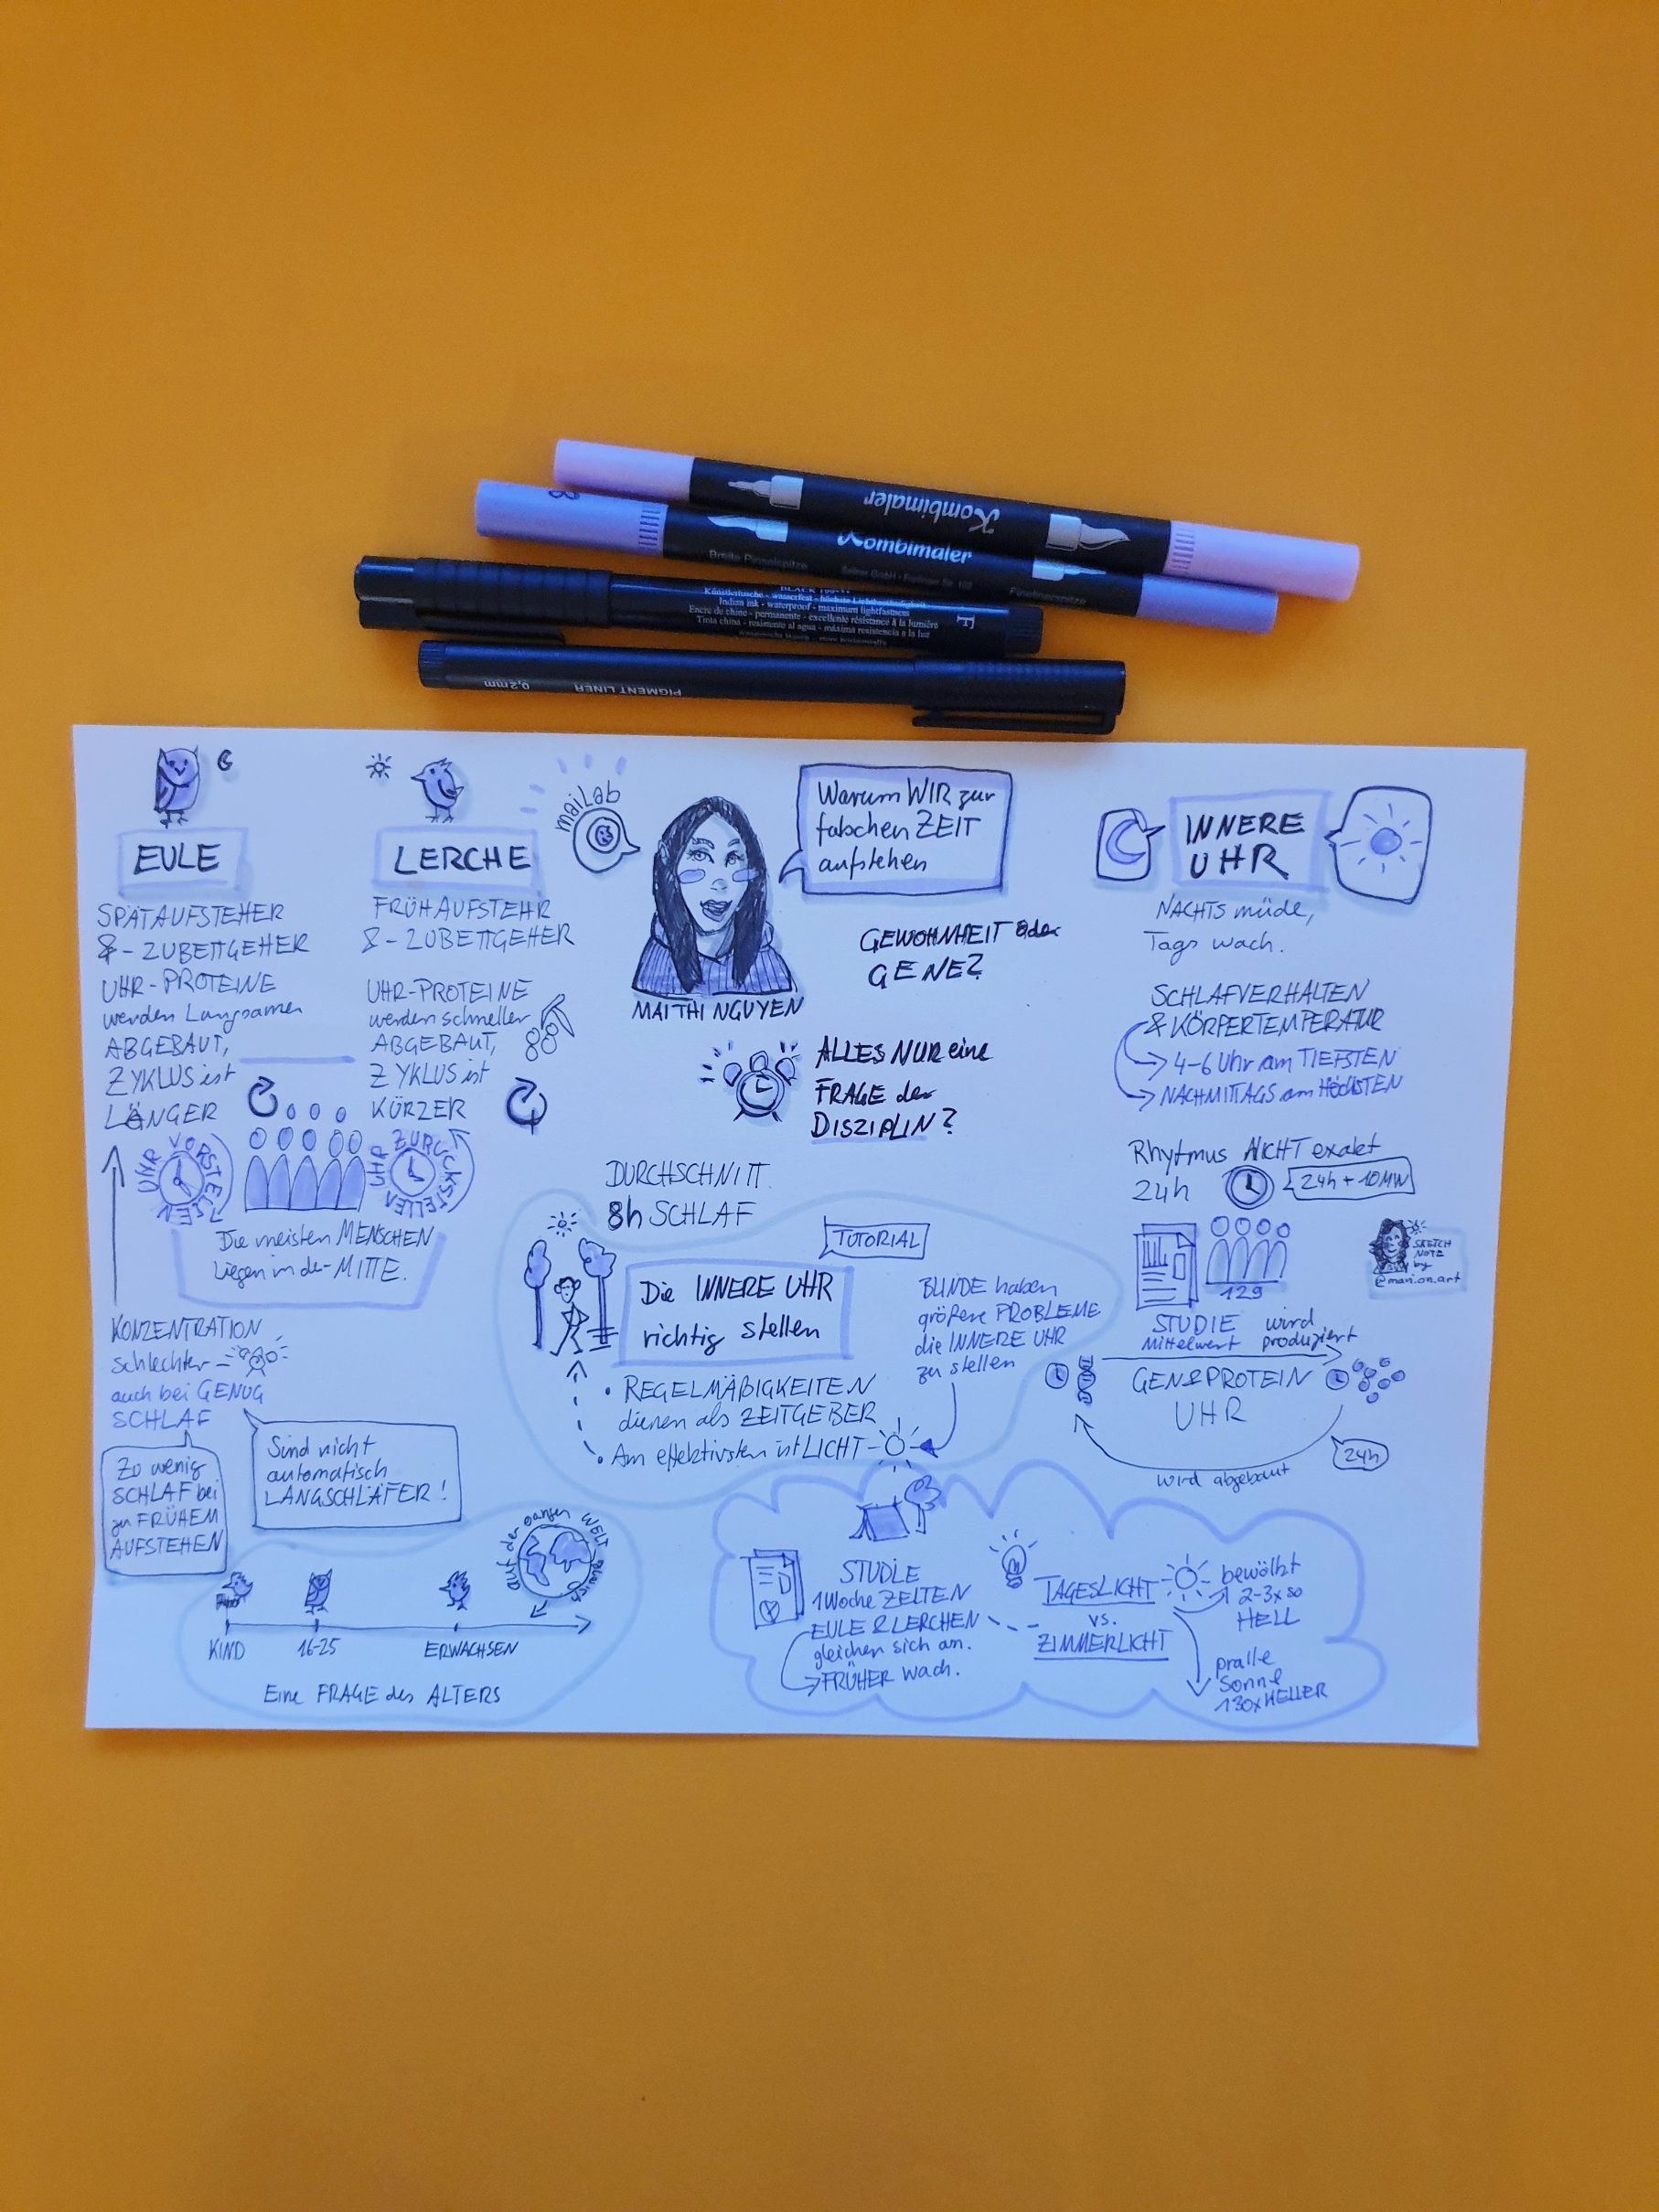 Kombimaler
8
Kombimaler
Breite Pinselspitze
Finelinerspitze
Künstlertusche - wasserfest - höchste Lichtbeständigkeit
Indian ink - waterproof - maximum lightfastness
Encre de chine - permanente - excellente résistance à la lumière
Tinta china - resistente al agua - máxima resistencia a la luz
F
PIGMENT LINER
0,2mm
EULE
SPÄTAUFSTEHER
& - ZUBETTGEHER
UHR-PROTEINE
werden Langsamer
ABGEBAUT,
ZYKLUS ist
LÄNGER
UHR VORSTELLEN
LERCHE
FRÜHAUFSTEHR
& - ZUBETTGEHER
UHR-PROTEINE
werden schneller
ABGEBAUT,
ZYKLUS ist
KÜRZER
UHR ZURÜCKSTELLEN
Die meisten MENSCHEN
liegen in der MITTE.
KONZENTRATION
schlechter
auch bei GENUG
SCHLAF
Zu wenig
SCHLAF bei
zu FRÜHEM
AUFSTEHEN
Sind nicht
automatisch
LANGSCHLÄFER!
auf der ganzen WELT gleich
KIND
16-25
ERWACHSEN
Eine FRAGE des ALTERS
maiLab
MAI THI NGUYEN
Warum WIR zur
falschen ZEIT
aufstehen
GEWOHNHEIT oder
GENE?
ALLES NUR eine
FRAGE der
DISZIPLIN?
DURCHSCHNITT
8h SCHLAF
TUTORIAL
Die INNERE UHR
richtig stellen
• REGELMÄßIGKEITEN
dienen als ZEITGEBER
• Am effektivsten ist LICHT
BLINDE haben
größere PROBLEME
die INNERE UHR
zu stellen
INNERE
UHR
NACHTS müde,
Tags wach.
SCHLAFVERHALTEN
& KÖRPERTEMPERATUR
4-6 Uhr am TIEFSTEN
NACHMITTAGS am HÖCHSTEN
Rhytmus NICHT exakt
24h
24h + 10MIN
129
STUDIE
Mittelwert
SKETCH
NOTE
by
@marion.art
wird
produziert
GEN&PROTEIN
UHR
24h
wird abgebaut
STUDIE
1 Woche ZELTEN
EULE & LERCHEN
gleichen sich an.
FRÜHER wach.
TAGESLICHT
vs.
ZIMMERLICHT
bewölkt
2-3x so
HELL
pralle
Sonne
130x HELLER